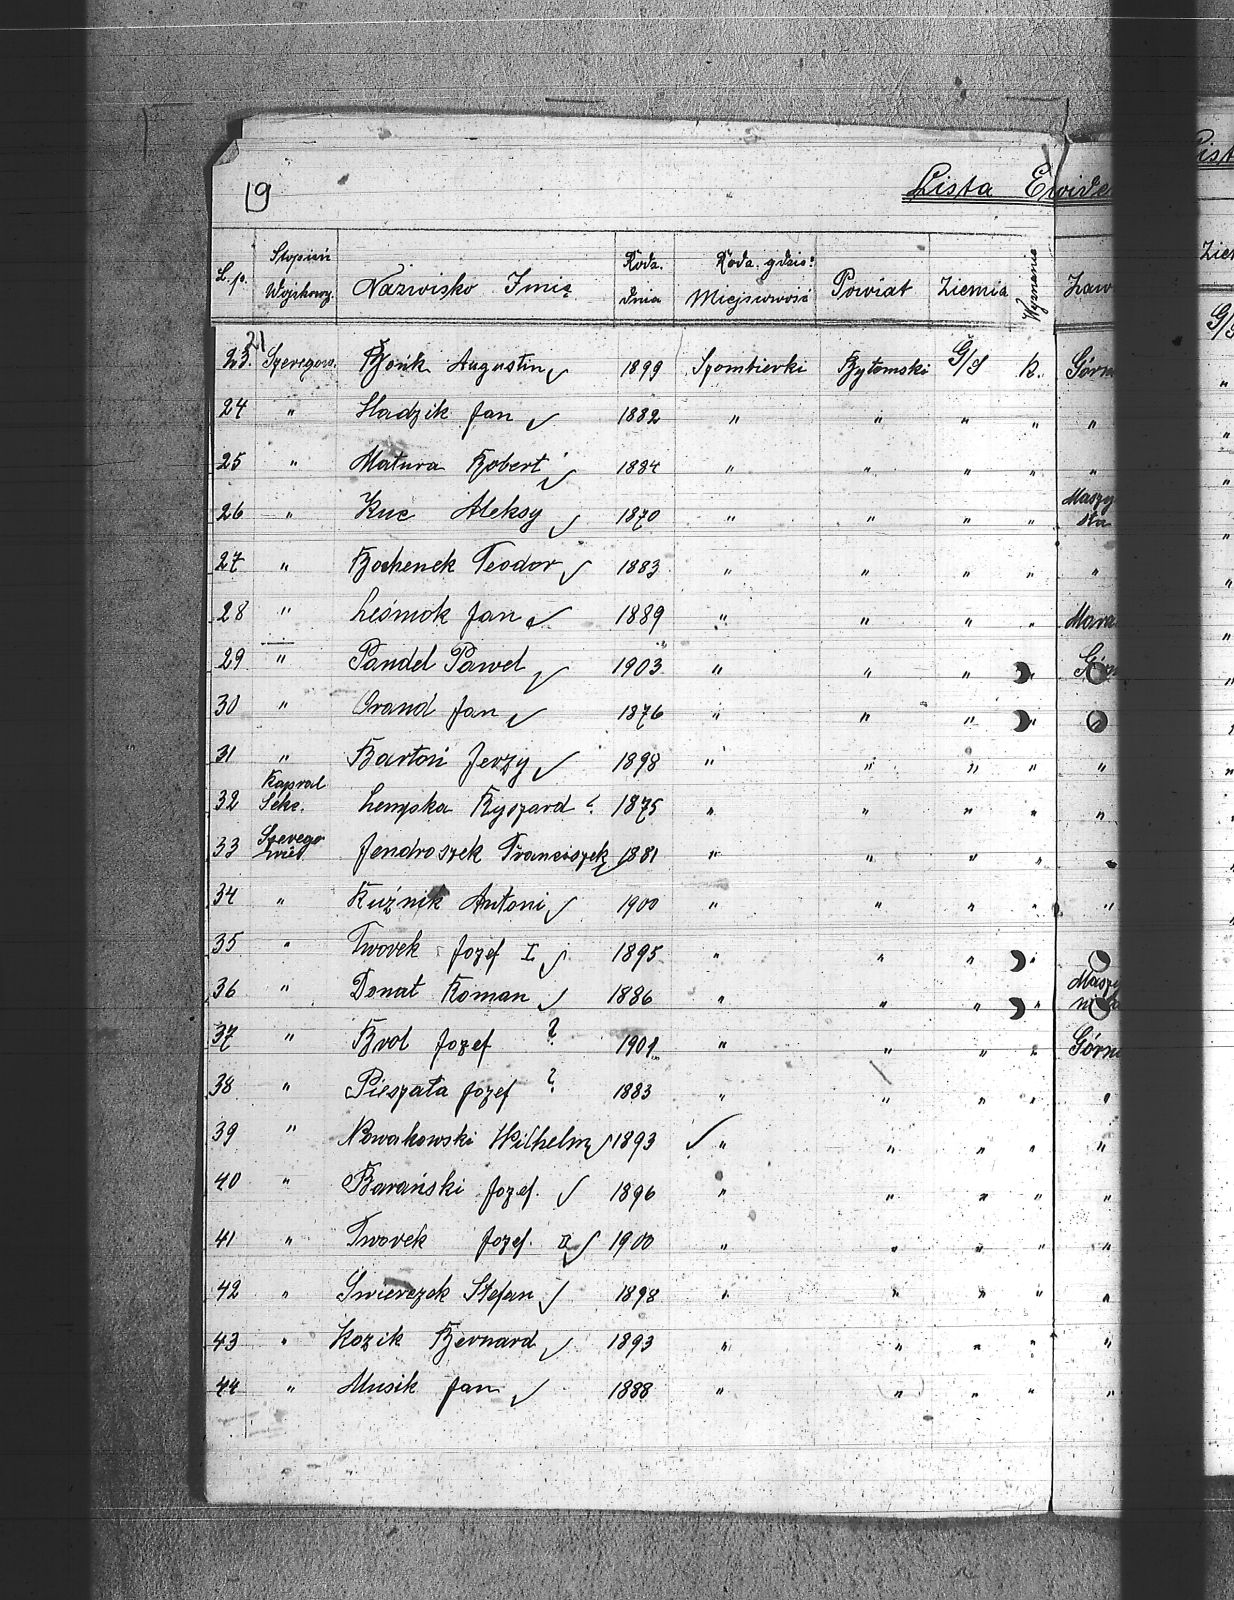 19
Lista Ewide
L.p. Stopień Wojskowy. Nazwisko Imię Rodz. dnia Rodz. gdzie: Miejscowość Powiat Ziemia Wyznanie Zaw
21
23. Szeregow. Bonk Augustin 1899 Szombierki Bytomski G/S k. Górn
24 " Hadzik Jan 1882 " " " " "
25 " Matura Robert 1884 " " " " "
26 " Kuc Aleksy 1870 " " " " Maszy sta
27 " Bochenek Teodor 1883 " " " " "
28 " Leśniok Jan 1889 " " " " Mara
29 " Pandel Pawel 1903 " " " "
30 " Orand Jan 1876 " " " "
31 " Bartoń Jerzy 1898 " " " " "
32 Kapral Sekc. Lempka Ryszard ? 1875 " " " " "
33 Szerego wiec Jendroszek Franciszek 1881 " " " " "
34 " Kuźnik Antoni 1900 " " " " "
35 " Tworek Jozef I 1895 " " " "
36 " Donat Roman 1886 " " " " Maszy
37 " Brol Jozef ? 1901 " " " " Górn
38 " Pieszała Jozef ? 1883 " " " " "
39 " Nowakowski Wilhelm 1893 " " " " "
40 " Barański Jozef. 1896 " " " " "
41 " Tworek Jozef. II 1900 " " " " "
42 " Swierczek Stefan 1898 " " " " "
43 " Kozik Bernard 1893 " " " " "
44 " Musik Jan 1888 " " " " "